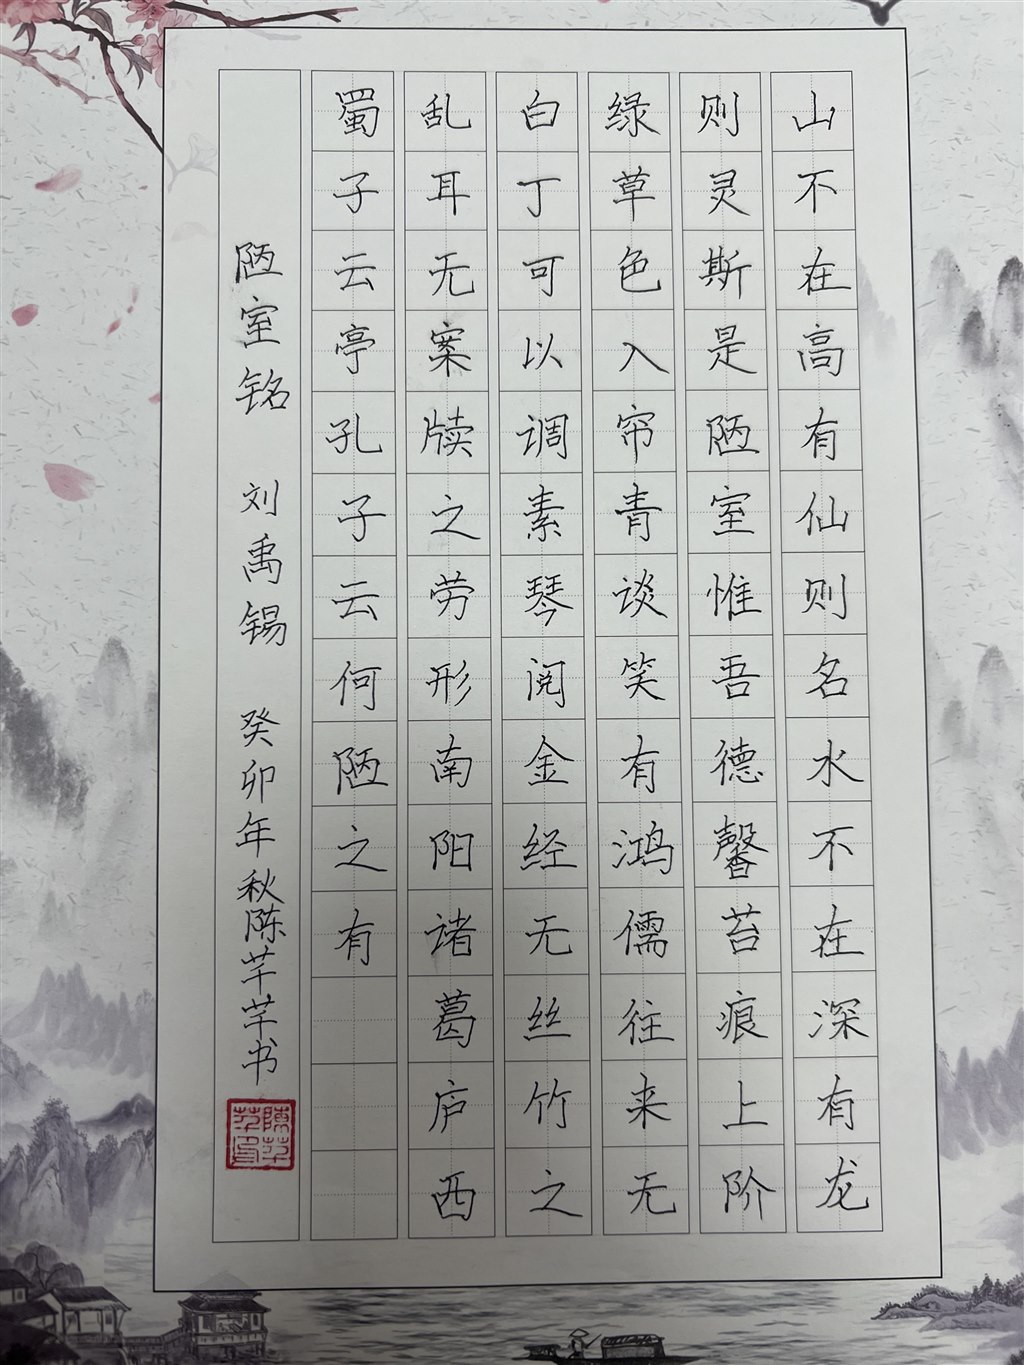 山不在高有仙则名水不在深有龙
则灵斯是陋室惟吾德馨苔痕上阶
绿草色入帘青谈笑有鸿儒往来无
白丁可以调素琴阅金经无丝竹之
乱耳无案牍之劳形南阳诸葛庐西
蜀子云亭孔子云何陋之有
陋室铭 刘禹锡 癸卯年秋陈芊芊书